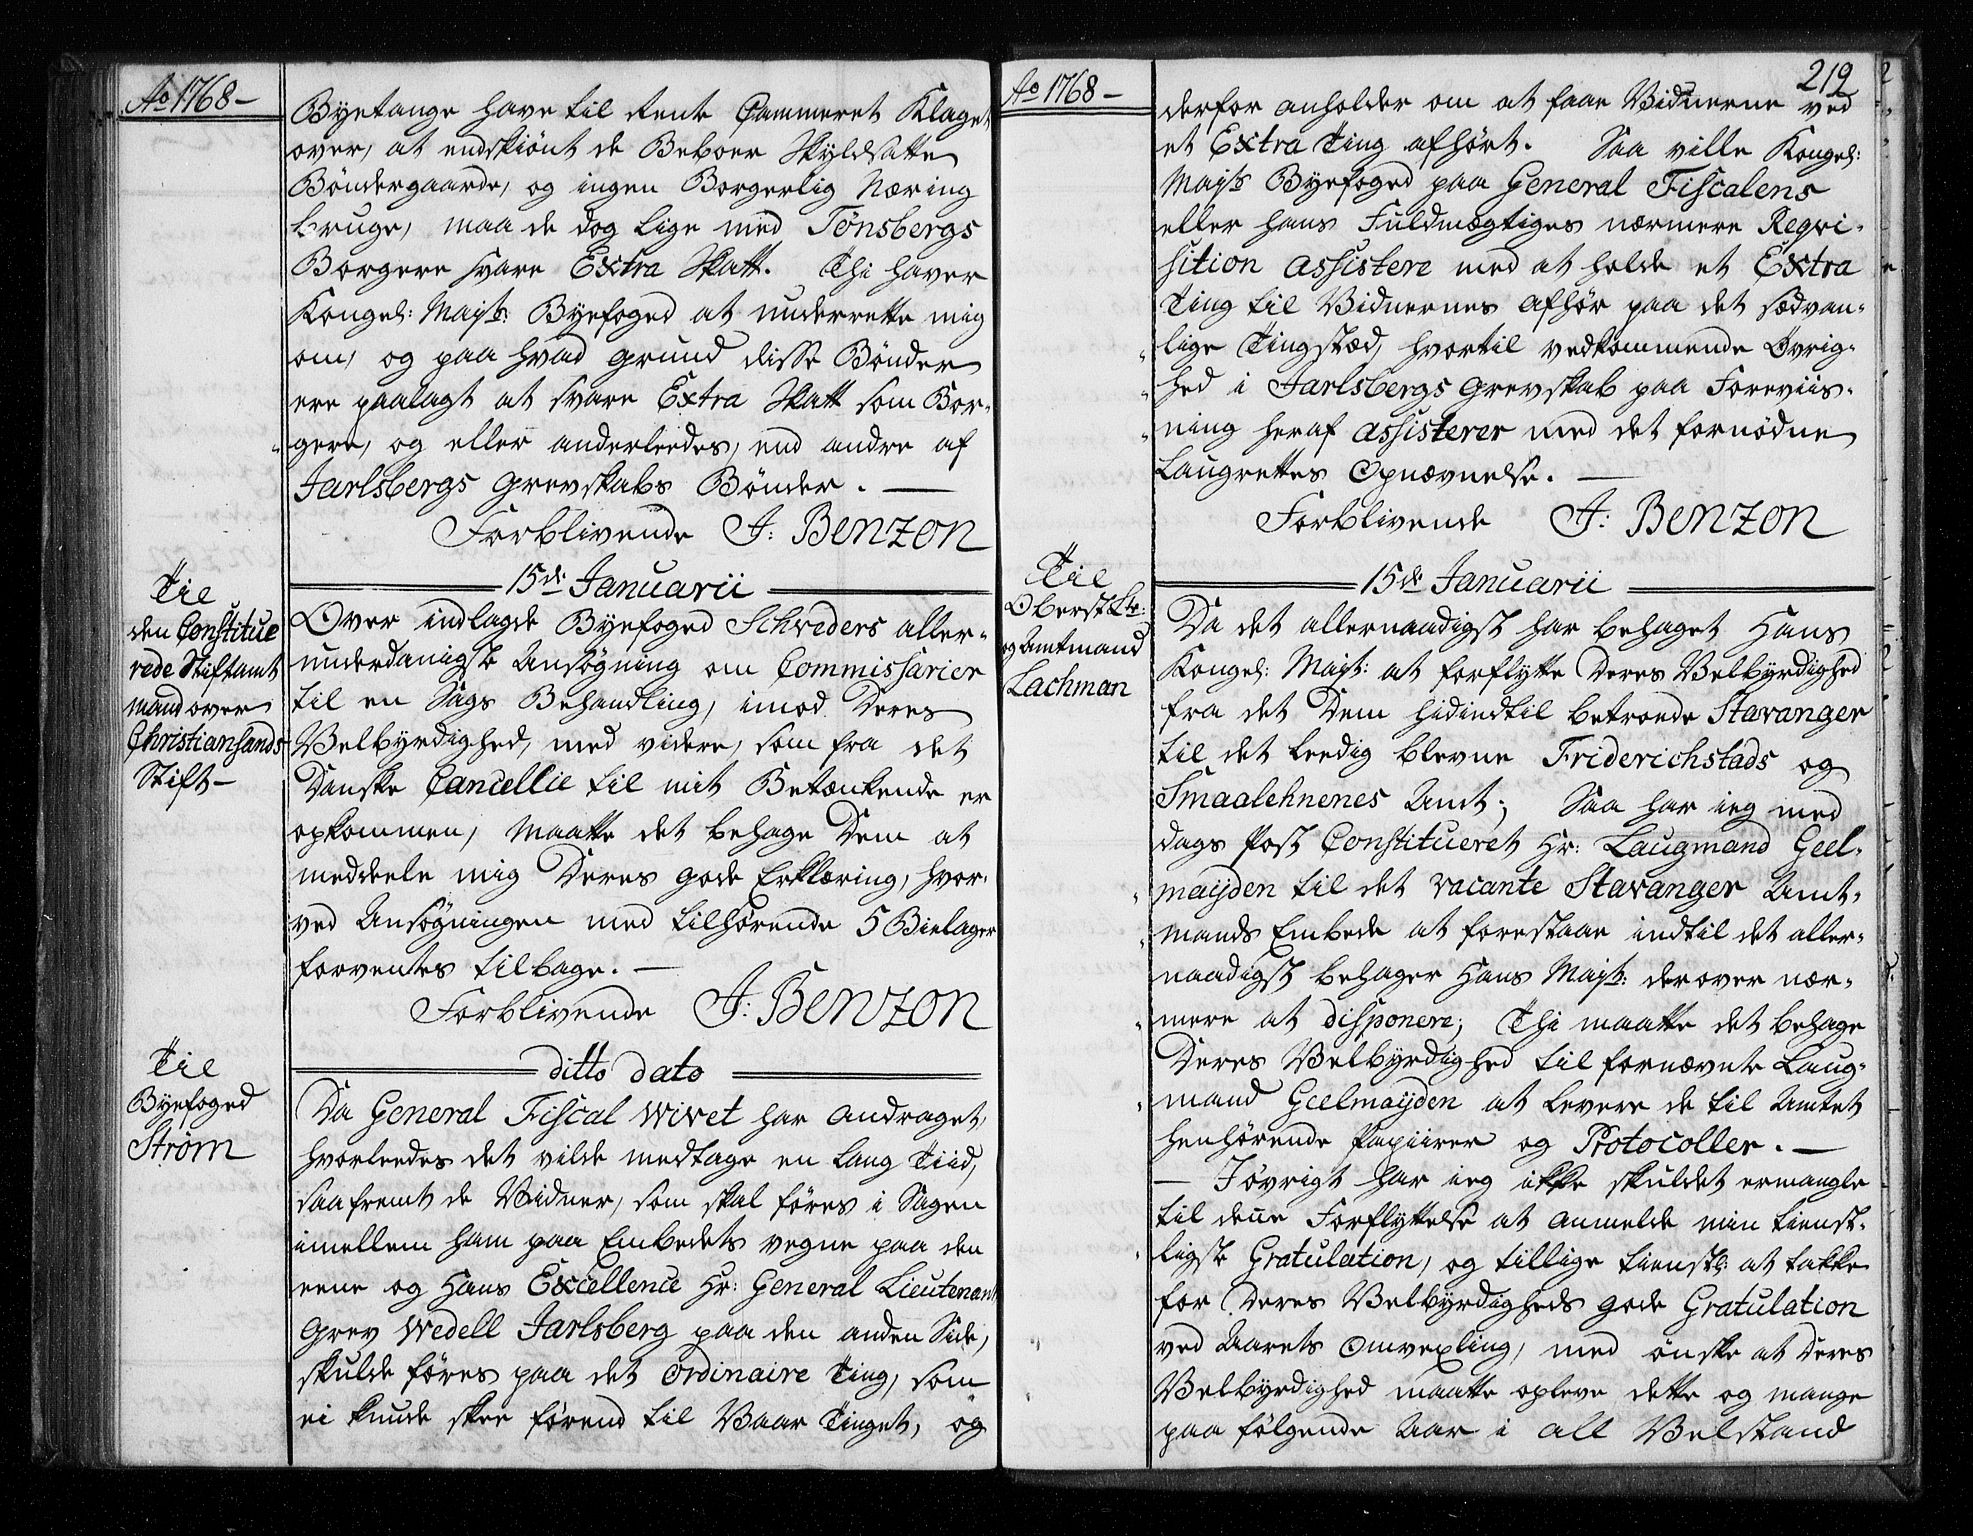 Ao 1768 –
Byetange have til Rente Cammeret Klaget
over, at endskiønt de Beboer Skyldsatte
Bøndergaarde, og ingen Borgerlig Næring
bruge, maa de dog lige med Tønsbergs
Borgere svare Extra Skatt. Thi haver
Kongel: Mayts: Byefoged at underrette mig
om, og paa hvad grund disse Bønder
ere paalagt at svare Extra Skatt som Bor-
gere, og eller anderleedes, end andre af
Jarlsbergs Grevskabs Bønder. —
Forblivende J: Benzon
15de Januarii
Til
den Constitue
rede Stiftamt
mand over
Christiansands
Stift –
Over indlagde Byefoged Schrøders aller-
underdanigste Ansøgning om Commissarier
til en Sags Behandling, imod Deres
Velbyrdighed, med videre, som fra det
Danske Cancellie til mit Betænkende er
opkommen, maatte det behage Dem at
meddeele mig Deres gode Erklæring, hvor-
ved Ansøgningen med tilhørende 5 Bielager
forventes tilbage. —
Forblivende J: Benzon
ditto dato
Til
Byefoged
Strøm
Da General Fiscal Wivet har andraget,
hvorleedes det vilde medtage en lang Tiid,
saafremt de Vidner, som skal føres i Sagen
imellem ham paa Embedets vegne paa den
eene og Hans Excellence Hr: General Lieutenant
Grev Wedell Jarlsberg paa den anden Side,
skulde føres paa det ordinaire Ting, som
ei kunde skee førend til Vaar Tinget, og
Ao 1768 –
219
derfor anholder om at faae Vidnerne ved
et Extra Ting afhørt. Saa ville Kongel:
Mayts Byefoged paa General Fiscalens
eller hans Fuldmægtiges nærmere Reqvi-
sition assistere med at holde et Extra
Ting til Vidnernes afhør paa det sædvan-
lige Tingstæd, hvortil vedkommende Øvrig-
hed i Jarlsbergs Grevskab paa Foreviis-
ning heraf assisterer med det fornødne
Laugrettes Opnævnelse. —
Forblivende J: Benzon
15de Januarii
Til
Oberst Ltr:
og Amtmand
Lachman
Da det allernaadigst har behaget Hans
Kongel: Mayt: at forflytte Deres Velbyrdighed
fra det Dem hidindtil betroede Stavanger
til det leedig blevne Friderichstads og
Smaalehnenes Amt; Saa har ieg med
dags Post Constitueret Hr: Laugmand Geel-
mayden til det vacante Stavanger Amt-
mands Embede at forestaae indtil det aller-
naadigst behager Hans Mayts: derover nær-
mere at disponere; Thi maatte det behage
Deres Velbyrdighed til fornævnte Laug-
mand Geelmayden at levere de til Amtet
henhørende Papiirer og Protocoller. —
— Iøvrigt har ieg ikke skuldet ermangle
til denne Forflyttelse at anmelde min tienst-
ligste Gratulation, og tillige tienstl: at takke
for Deres Velbyrdigheds gode Gratulation
ved Aarets Omvexling, med ønske at Deres
Velbyrdighed maatte opleve dette og mange
paa følgende Aar i all Velstand